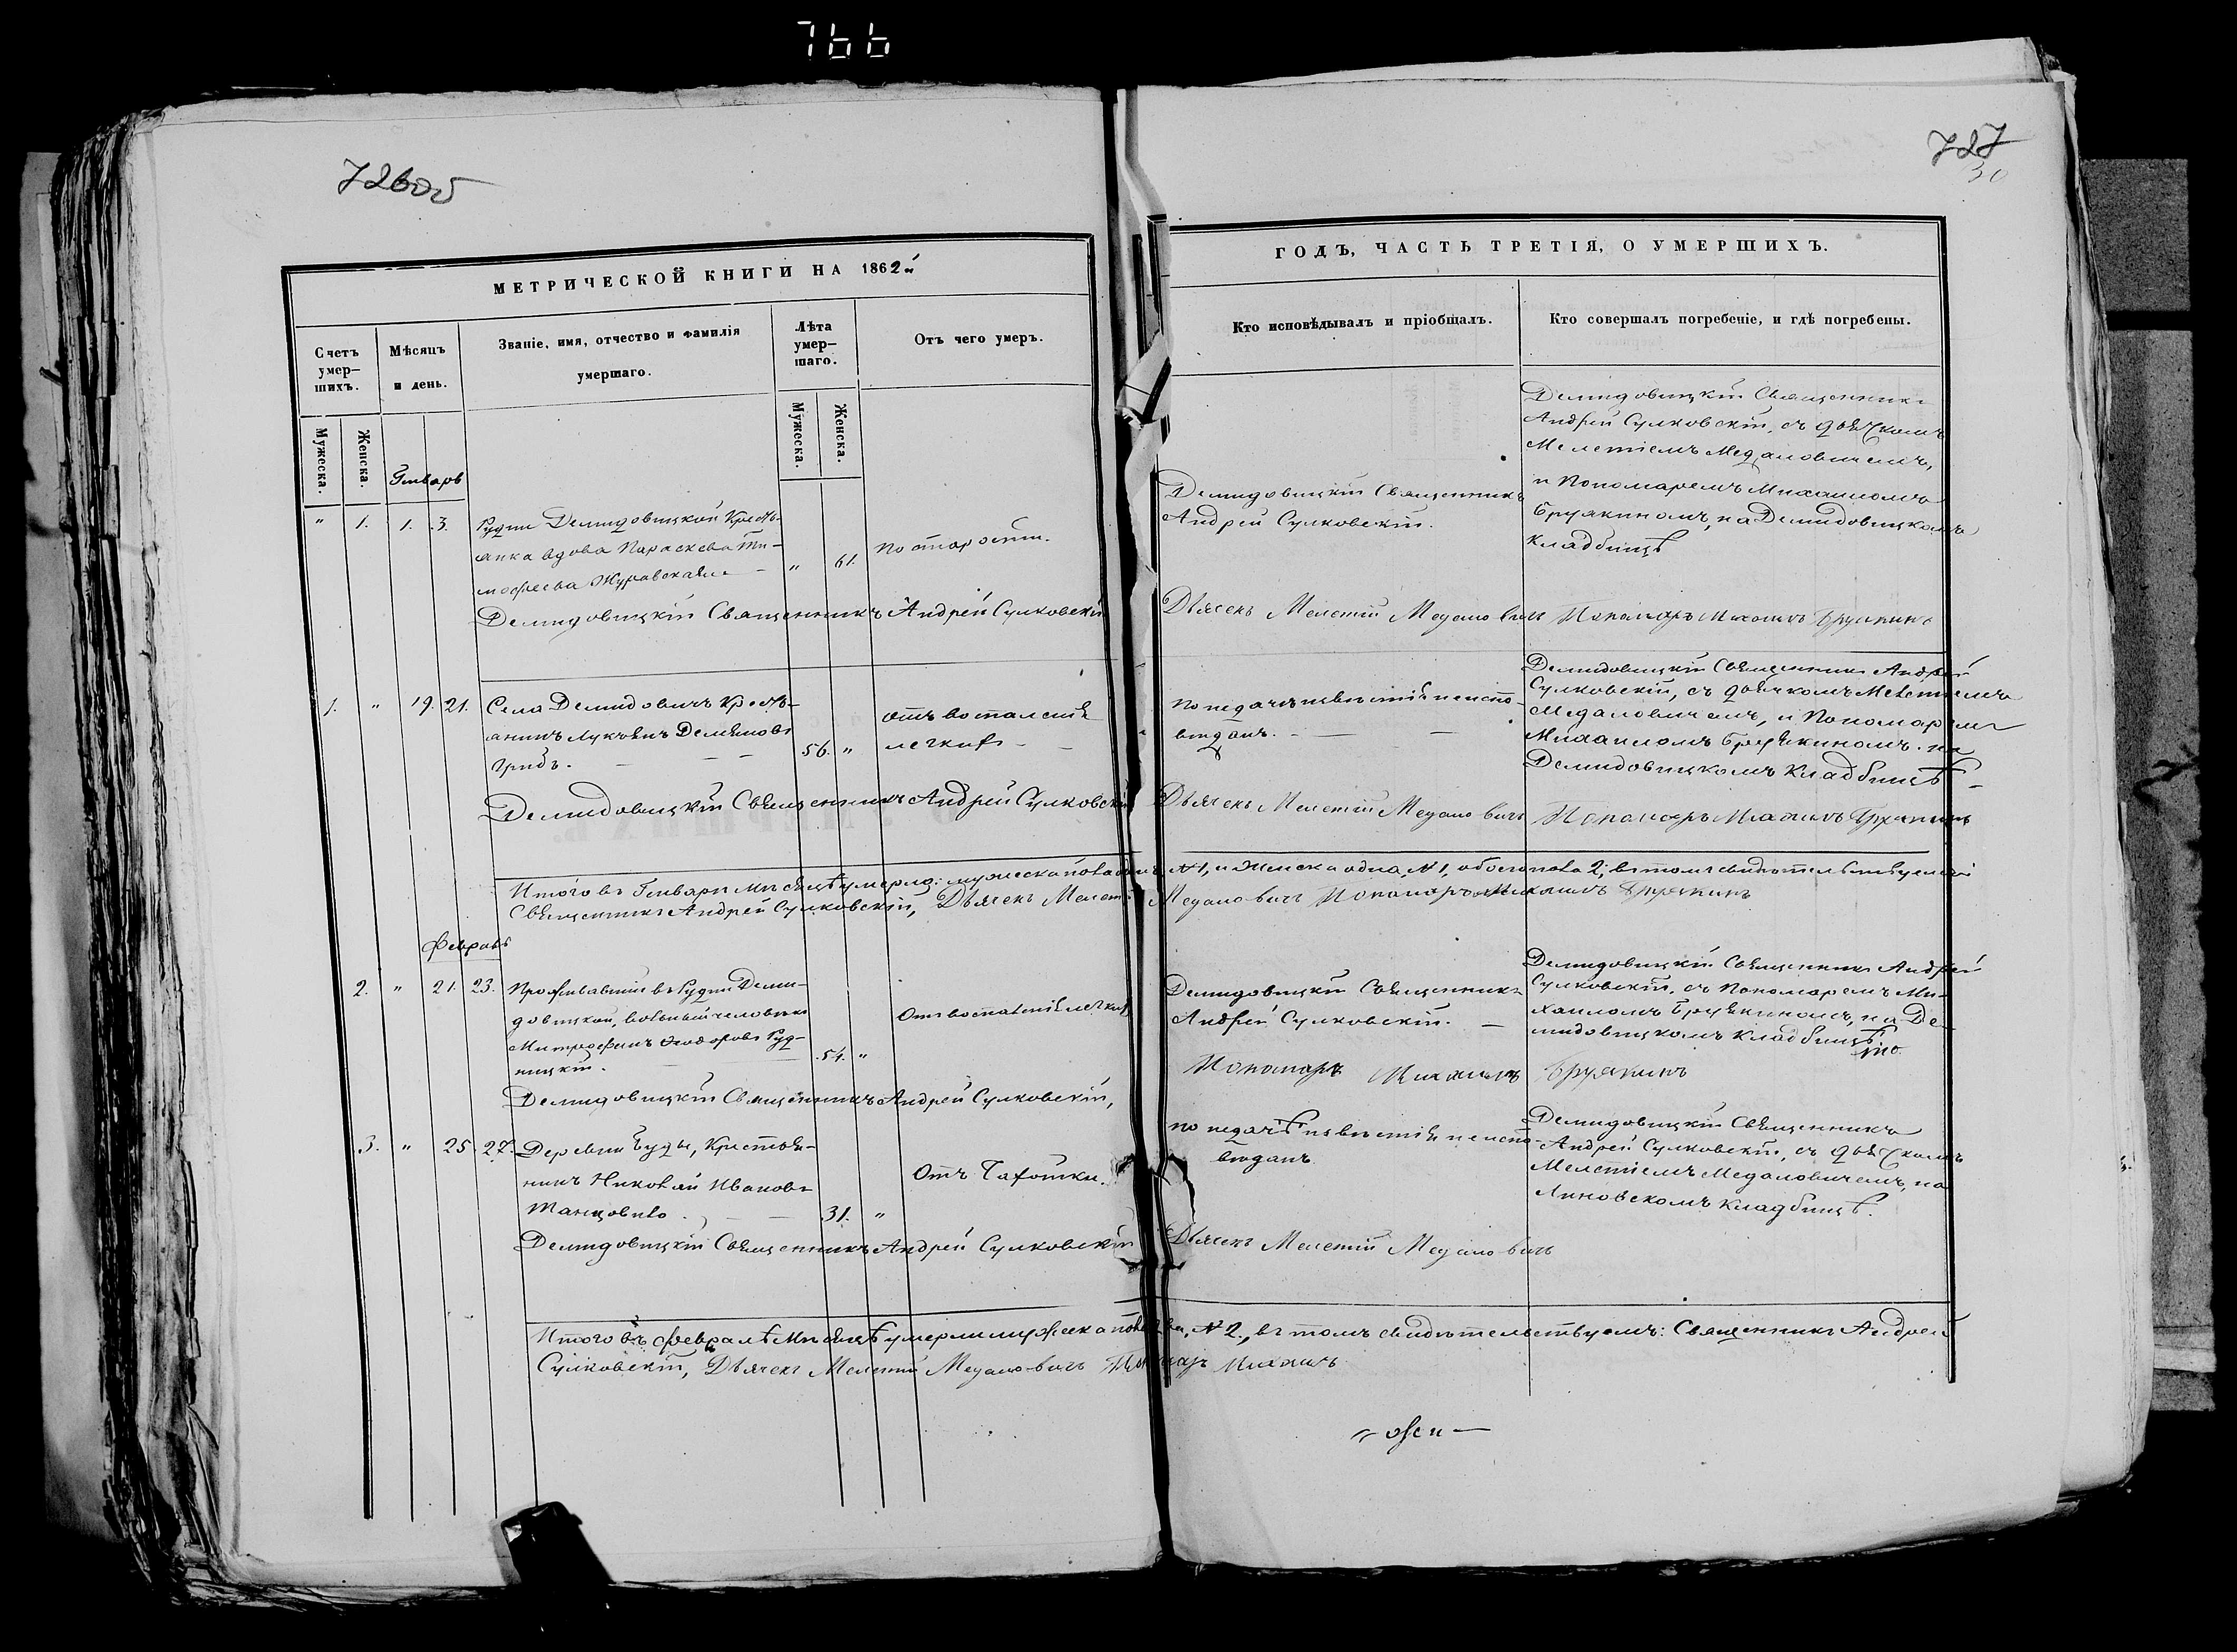 766
726об
727
30
МЕТРИЧЕСКОЙ КНИГИ НА 1862й
ГОДЪ, ЧАСТЬ ТРЕТІЯ, О УМЕРШИХЪ.
Счетъ умер-
шихъ.
Мѣсяцъ
и день.
Званіе, имя, отчество и фамилія
умершаго.
Лѣта
умер-
шаго.
Отъ чего умеръ.
Кто исповѣдывалъ и пріобщалъ.
Кто совершалъ погребеніе, и гдѣ погребены.
Мужеска.
Женска.
Мужеска.
Женска.
Январь
" 1. 1. 3.
Рудни Демидовицкой Кресть-
янка вдова Параскева Ти-
мофеева Журавская
" 61.
по старости.
Демидовицкій Священникъ
Андрей Сулковскій.
Демидовицкій Священникъ
Андрей Сулковскій, съ дьячкомъ
Мелетіемъ Медаловичемъ,
и Пономаремъ Михаиломъ
Брулкиномъ, на Демидовицкомъ
кладбищѣ
Демидовицкій Священникъ Андрей Сулковскій
Дьячекъ Мелетій Медаловичъ Пономарь Михаилъ
1. " 19. 21.
Села Демидовичъ Кресть-
янинъ Лукьянъ Демьяновъ
Грибъ.
56. "
отъ воспаленія
легкихъ
По недачѣ извѣстія неиспо-
вѣданъ.
Демидовицкій Священникъ Андрей
Сулковскій, съ дьячкомъ Мелетіемъ
Медаловичемъ, и Пономаремъ
Михаиломъ на
Демидовицкомъ Кладбищѣ
Демидовицкій Священникъ Андрей Сулковскій
Дьячекъ Мелетій Медаловичъ Пономарь Михаилъ
Итого въ Январѣ мѣсяцѣ умерло: мужеска пола одинъ №1, и Женска одна №1, обоего пола 2; въ томъ свидѣтельствуемъ
Священникъ Андрей Сулковскій, Дьячекъ Мелетій Медаловичъ Пономарь Михаилъ
Февраль
2. " 21. 23.
Проживавшій въ Рудни Деми-
довицкой, вольный человѣкъ
Митрофанъ Ѳеодоровъ Руд-
ницкій.
54. "
Отъ воспаленія легкихъ
Демидовицкій Священникъ
Андрей Сулковскій.
Демидовицкій Священникъ Андрей
Сулковскій, съ Пономаремъ Ми-
хаиломъ на Де-
мидовицкомъ Кладбищѣ
Демидовицкій Священникъ Андрей Сулковскій,
Пономарь Михаилъ
3. " 25 27.
Деревни Буды, Крестья-
нинъ Николай Ивановъ
31. "
Отъ Чахотки.
по недачѣ извѣстія неиспо-
вѣданъ
Демидовицкій Священникъ
Андрей Сулковскій, съ дьячкомъ
Мелетіемъ Медаловичемъ, на
Линовскомъ Кладбищѣ.
Демидовицкій Священникъ Андрей Сулковскій
Дьячекъ Мелетій Медаловичъ
Итого въ Февралѣ мѣсяцѣ умерли мужеска пола два, №2., въ томъ свидѣтельствуемъ: Священникъ Андрей
Сулковскій, Дьячекъ Мелетій Медаловичъ Пономарь Михаилъ